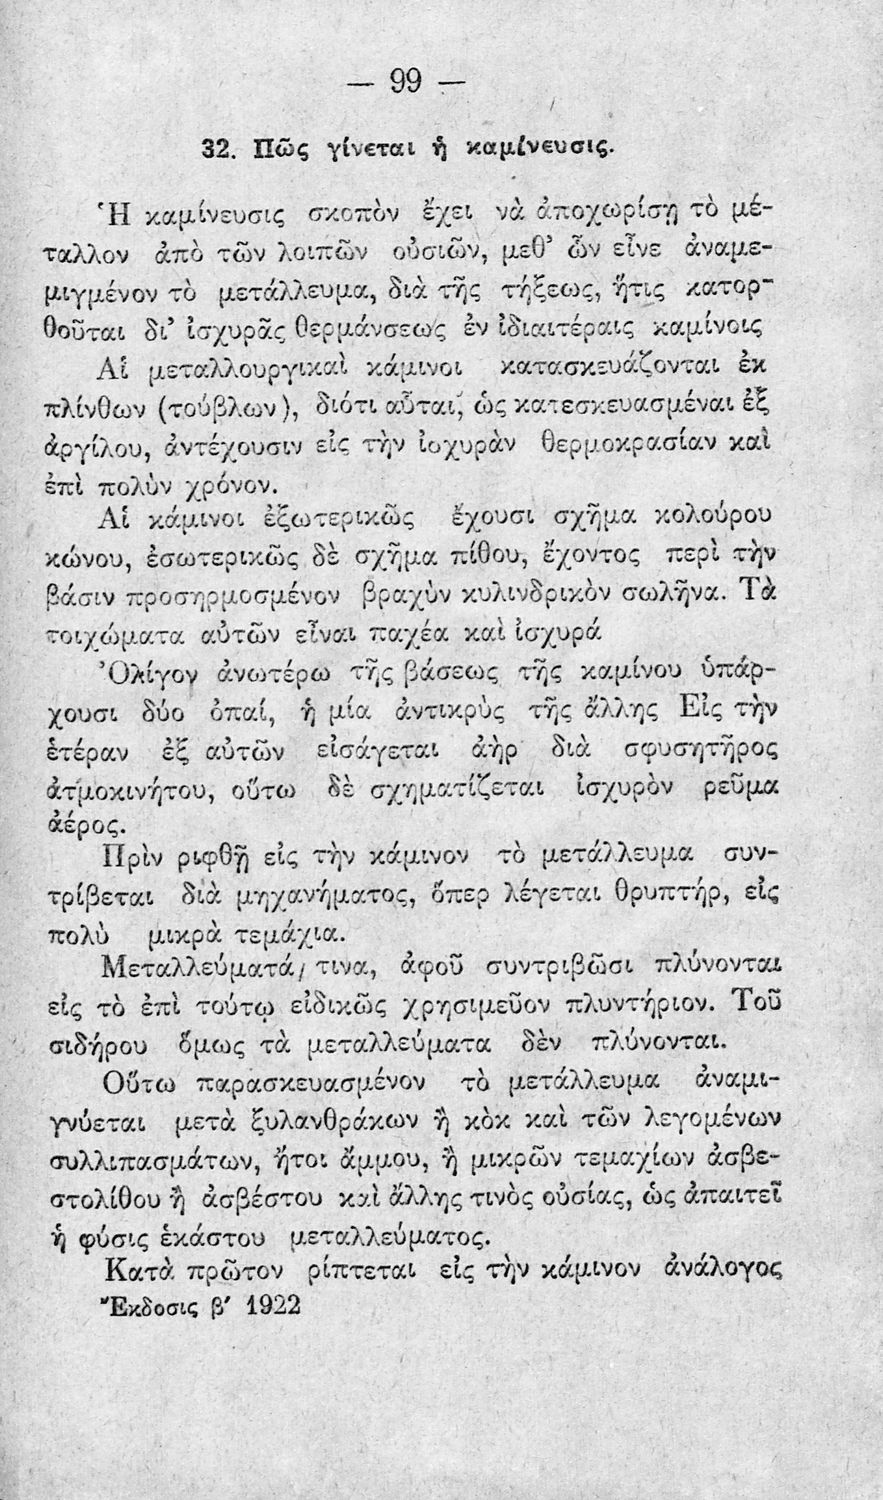 — 99 —
32. Πῶς γίνεται ἡ καμίνευσις.
Ἡ καμίνευσις σκοπὸν ἔχει νὰ ἀποχωρίσῃ τὸ μέ-
ταλλον ἀπὸ τῶν λοιπῶν οὐσιῶν, μεθ’ ὧν εἶνε ἀναμε-
μιγμένον τὸ μετάλλευμα, διὰ τῆς τήξεως, ἥτις κατορ-
θοῦται δι’ ἰσχυρᾶς θερμάνσεως ἐν ἰδιαιτέραις καμίνοις
Αἱ μεταλλουργικαὶ κάμινοι κατασκευάζονται ἐκ
πλίνθων (τούβλων), διότι αὗται, ὡς κατεσκευασμέναι ἐξ
ἀργίλου, ἀντέχουσιν εἰς τὴν ἰσχυρὰν θερμοκρασίαν καὶ
ἐπὶ πολὺν χρόνον.
Αἱ κάμινοι ἐξωτερικῶς ἔχουσι σχῆμα κολούρου
κώνου, ἐσωτερικῶς δὲ σχῆμα πίθου, ἔχοντος περὶ τὴν
βάσιν προσηρμοσμένον βραχὺν κυλινδρικὸν σωλῆνα. Τὰ
τοιχώματα αὐτῶν εἶναι παχέα καὶ ἰσχυρά
Ὀλίγον ἀνωτέρω τῆς βάσεως τῆς καμίνου ὑπάρ-
χουσι δύο ὀπαί, ἡ μία ἀντικρὺς τῆς ἄλλης Εἰς τὴν
ἑτέραν ἐξ αὐτῶν εἰσάγεται ἀὴρ διὰ σφυσητῆρος
ἀτμοκινήτου, οὕτω δὲ σχηματίζεται ἰσχυρὸν ρεῦμα
ἀέρος.
Πρὶν ριφθῇ εἰς τὴν κάμινον τὸ μετάλλευμα συν-
τρίβεται διὰ μηχανήματος, ὅπερ λέγεται θρυπτήρ, εἰς
πολὺ μικρὰ τεμάχια.
Μεταλλεύματά τινα, ἀφοῦ συντριβῶσι πλύνονται
εἰς τὸ ἐπὶ τούτῳ εἰδικῶς χρησιμεῦον πλυντήριον. Τοῦ
σιδήρου ὅμως τὰ μεταλλεύματα δὲν πλύνονται.
Οὕτω παρασκευασμένον τὸ μετάλλευμα ἀναμι-
γνύεται μετὰ ξυλανθράκων ἢ κὸκ καὶ τῶν λεγομένων
συλλιπασμάτων, ἤτοι ἄμμου, ἢ μικρῶν τεμαχίων ἀσβε-
στολίθου ἢ ἀσβέστου καὶ ἄλλης τινὸς οὐσίας, ὡς ἀπαιτεῖ
ἡ φύσις ἑκάστου μεταλλεύματος.
Κατὰ πρῶτον ρίπτεται εἰς τὴν κάμινον ἀνάλογος
Ἔκδοσις β′ 1922